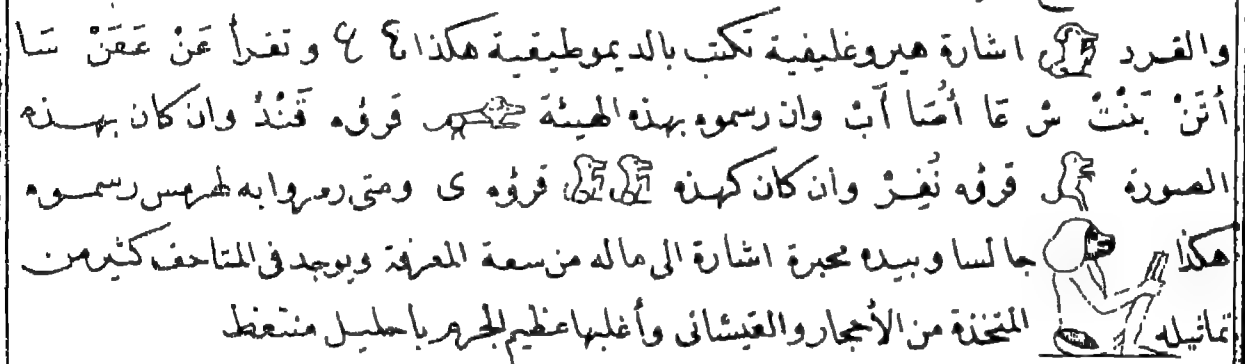 والقرد اشارة هيروغليفية تكتب بالديموطيقية هكذا و تقرأ عَنْ عَقَنْ سَا
أَتَنْ بَنْتْ شْ عَا أُصَا آبْ وان رسموه بهذه الهيئة قرؤه قَنْدُ وان كان بهــذه
الصورة قرؤه نُفِرْ وان كان كهذه قرؤه ى ومتى رمزوا به لهرمس رسمــوه
هكذا جالسا وبيده محبرة اشارة الى ماله من سعة المعرفة ويوجد فى المتاحف كثير من
تماثيله المتخذة من الأحجار والقيشانى وأغلبها عظيم الجرم باحليل منتعظ